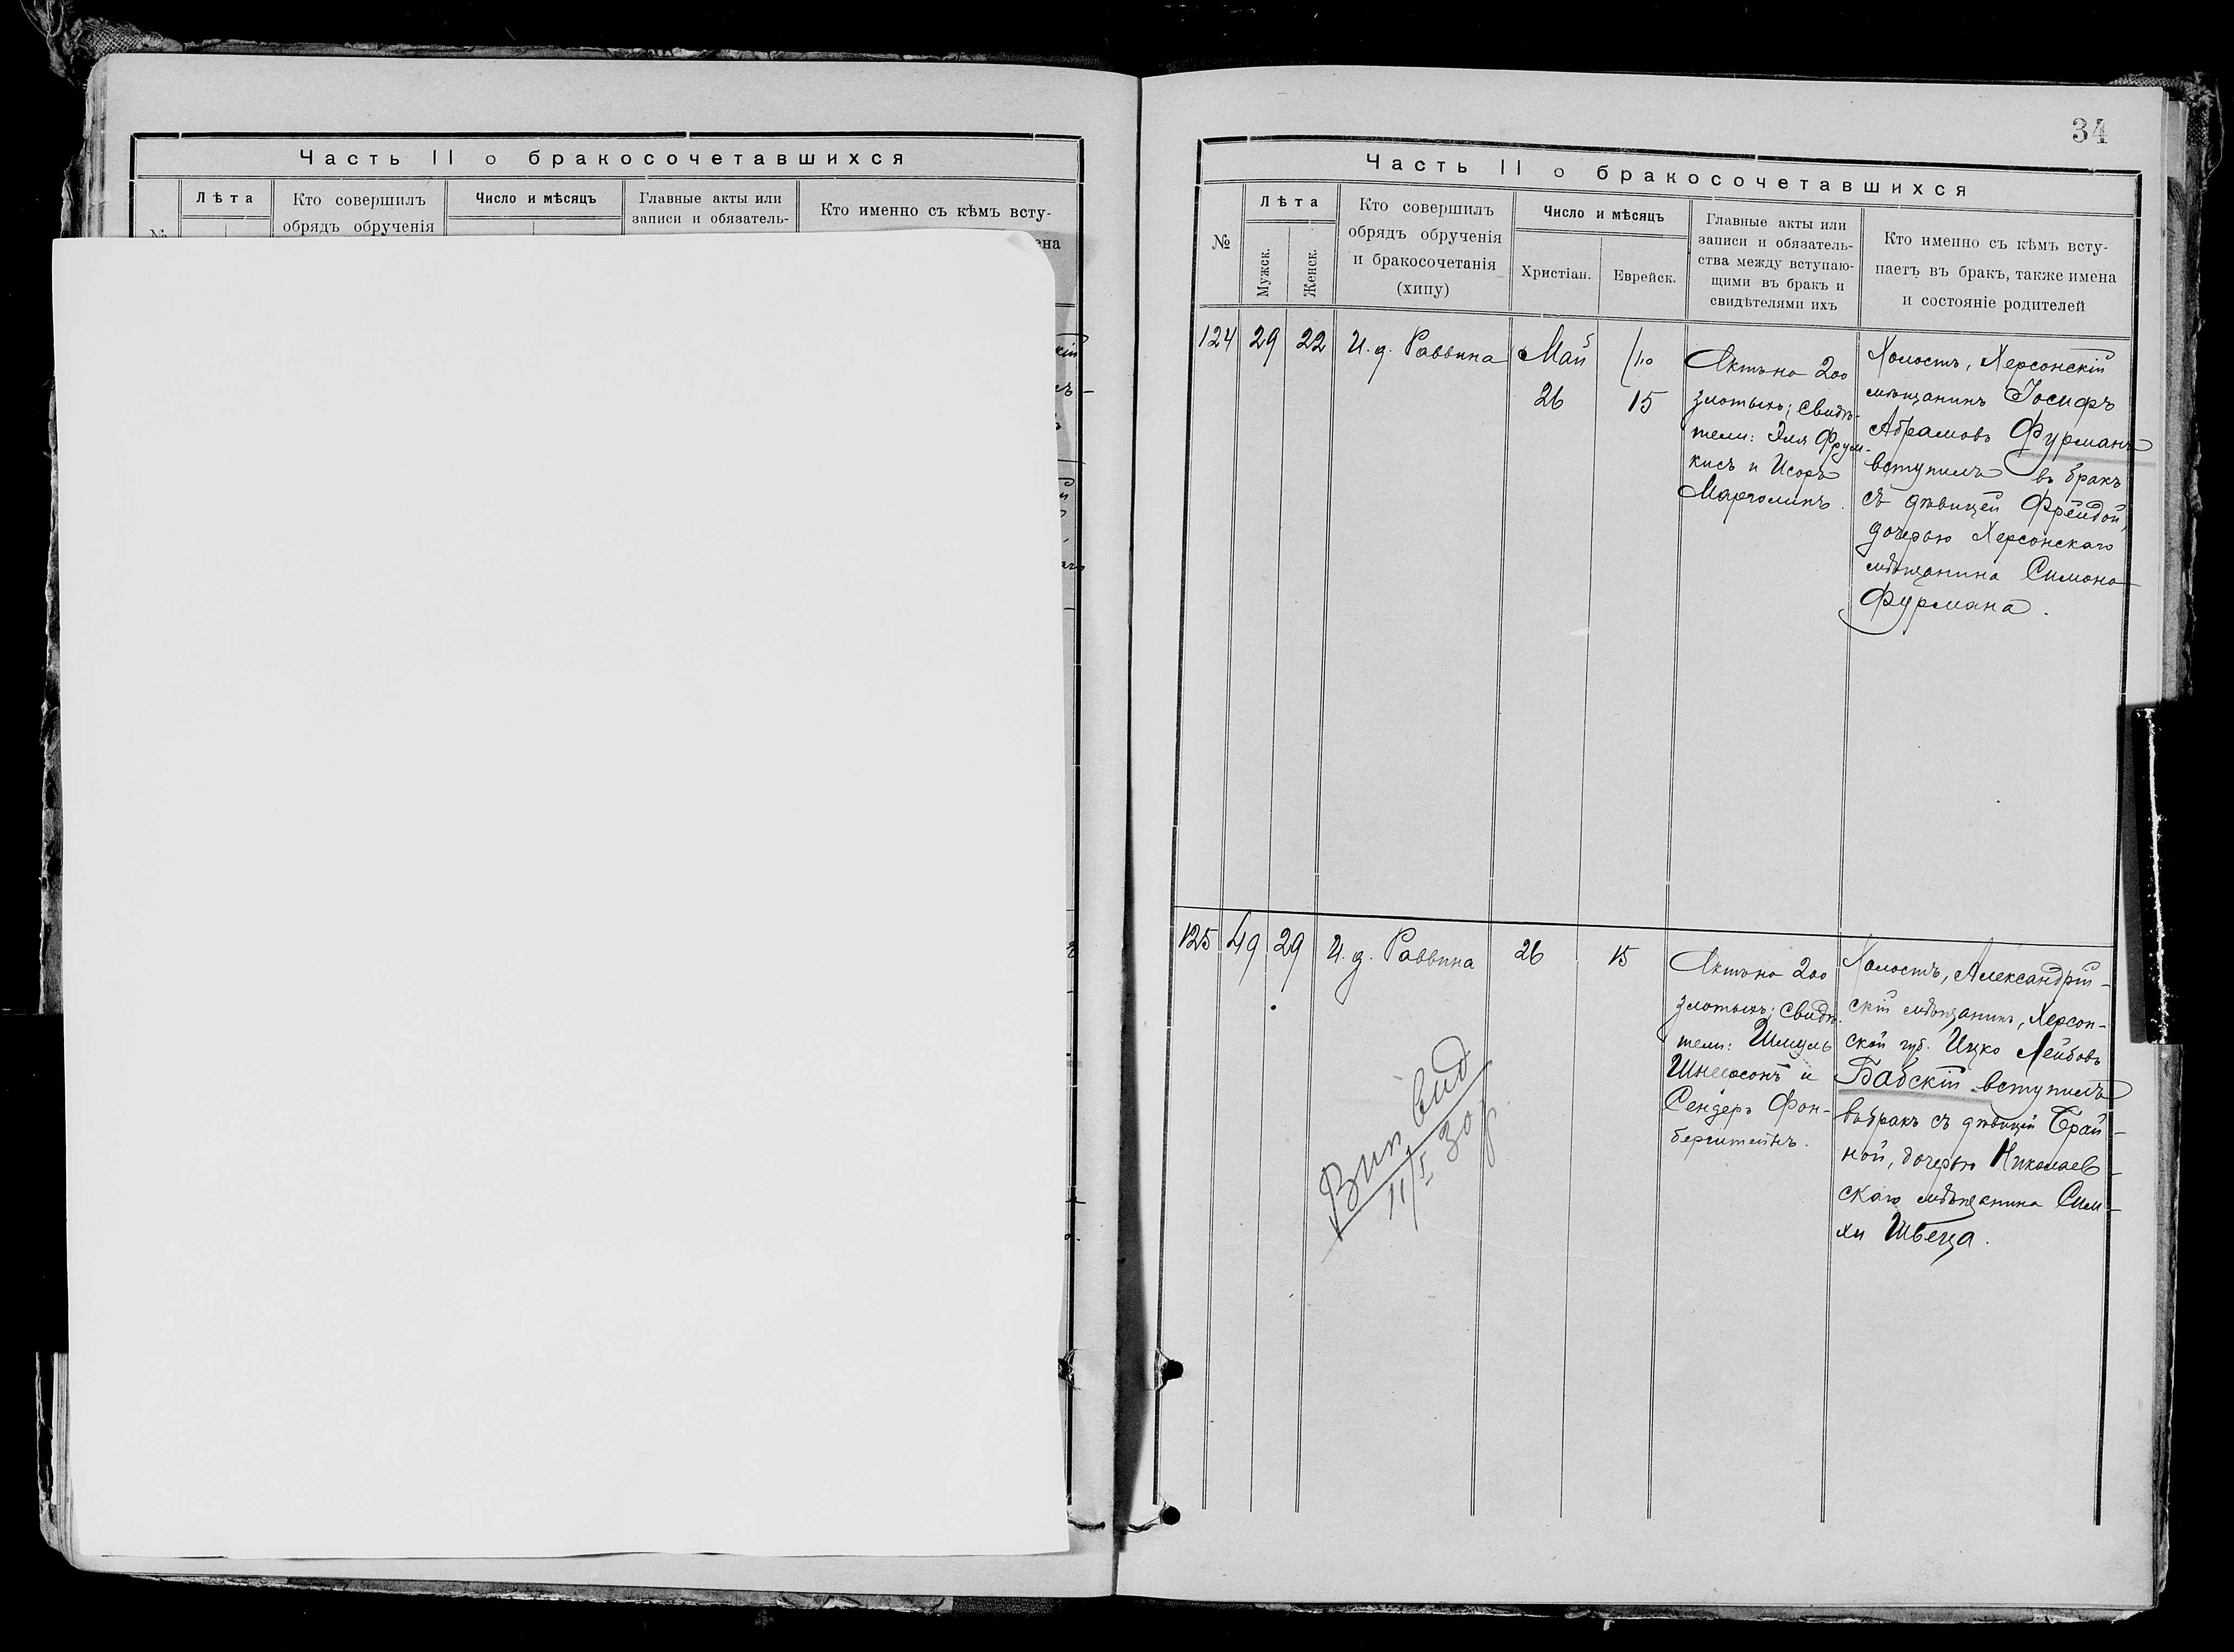 Часть II о бракосочетавшихся
№
Лѣта
Кто совершилъ
обрядъ обрученія
Число и мѣсяцъ
Главные акты или
записи и обязатель-
Кто именно съ кѣмъ всту-
34
Часть II о бракосочетавшихся
№
Лѣта
Мужск.
Женск.
Кто совершилъ
обрядъ обрученія
и бракосочетанія
(хипу)
Число и мѣсяцъ
Христіан.
Еврейск.
Главные акты или
записи и обязатель-
ства между вступаю-
щими въ бракъ и
свидѣтелями ихъ
Кто именно съ кѣмъ всту-
паетъ въ бракъ, также имена
и состояніе родителей
124
29
22
И. д. Раввина
Май
26
15
Актъ на 200
злотыхъ; свидѣ-
тели: Эля Фрум-
кисъ и Исоръ
Марголинъ.
Холостъ, Херсонскій
мѣщанинъ Іосифъ
Абрамовъ Фурманъ
вступилъ въ бракъ
съ дѣвицей Фрейдой,
дочерью Херсонскаго
мѣщанина Симона
Фурмана.
125
49
29
И. д. Раввина
26
15
Актъ на 200
злотыхъ; свидѣ-
тели: Шмуль
Шнеерсонъ и
Сендеръ Фон-
берштейнъ.
Холостъ, Александрій-
скій мѣщанинъ, Херсон-
ской губ. Ицко Лейбовъ
Бабскій вступилъ
въ бракъ съ дѣвицей Брай-
ной, дочерью Николаев-
скаго мѣщанина Сим-
хи Швеца.
Вип вид
11/I 30 р.